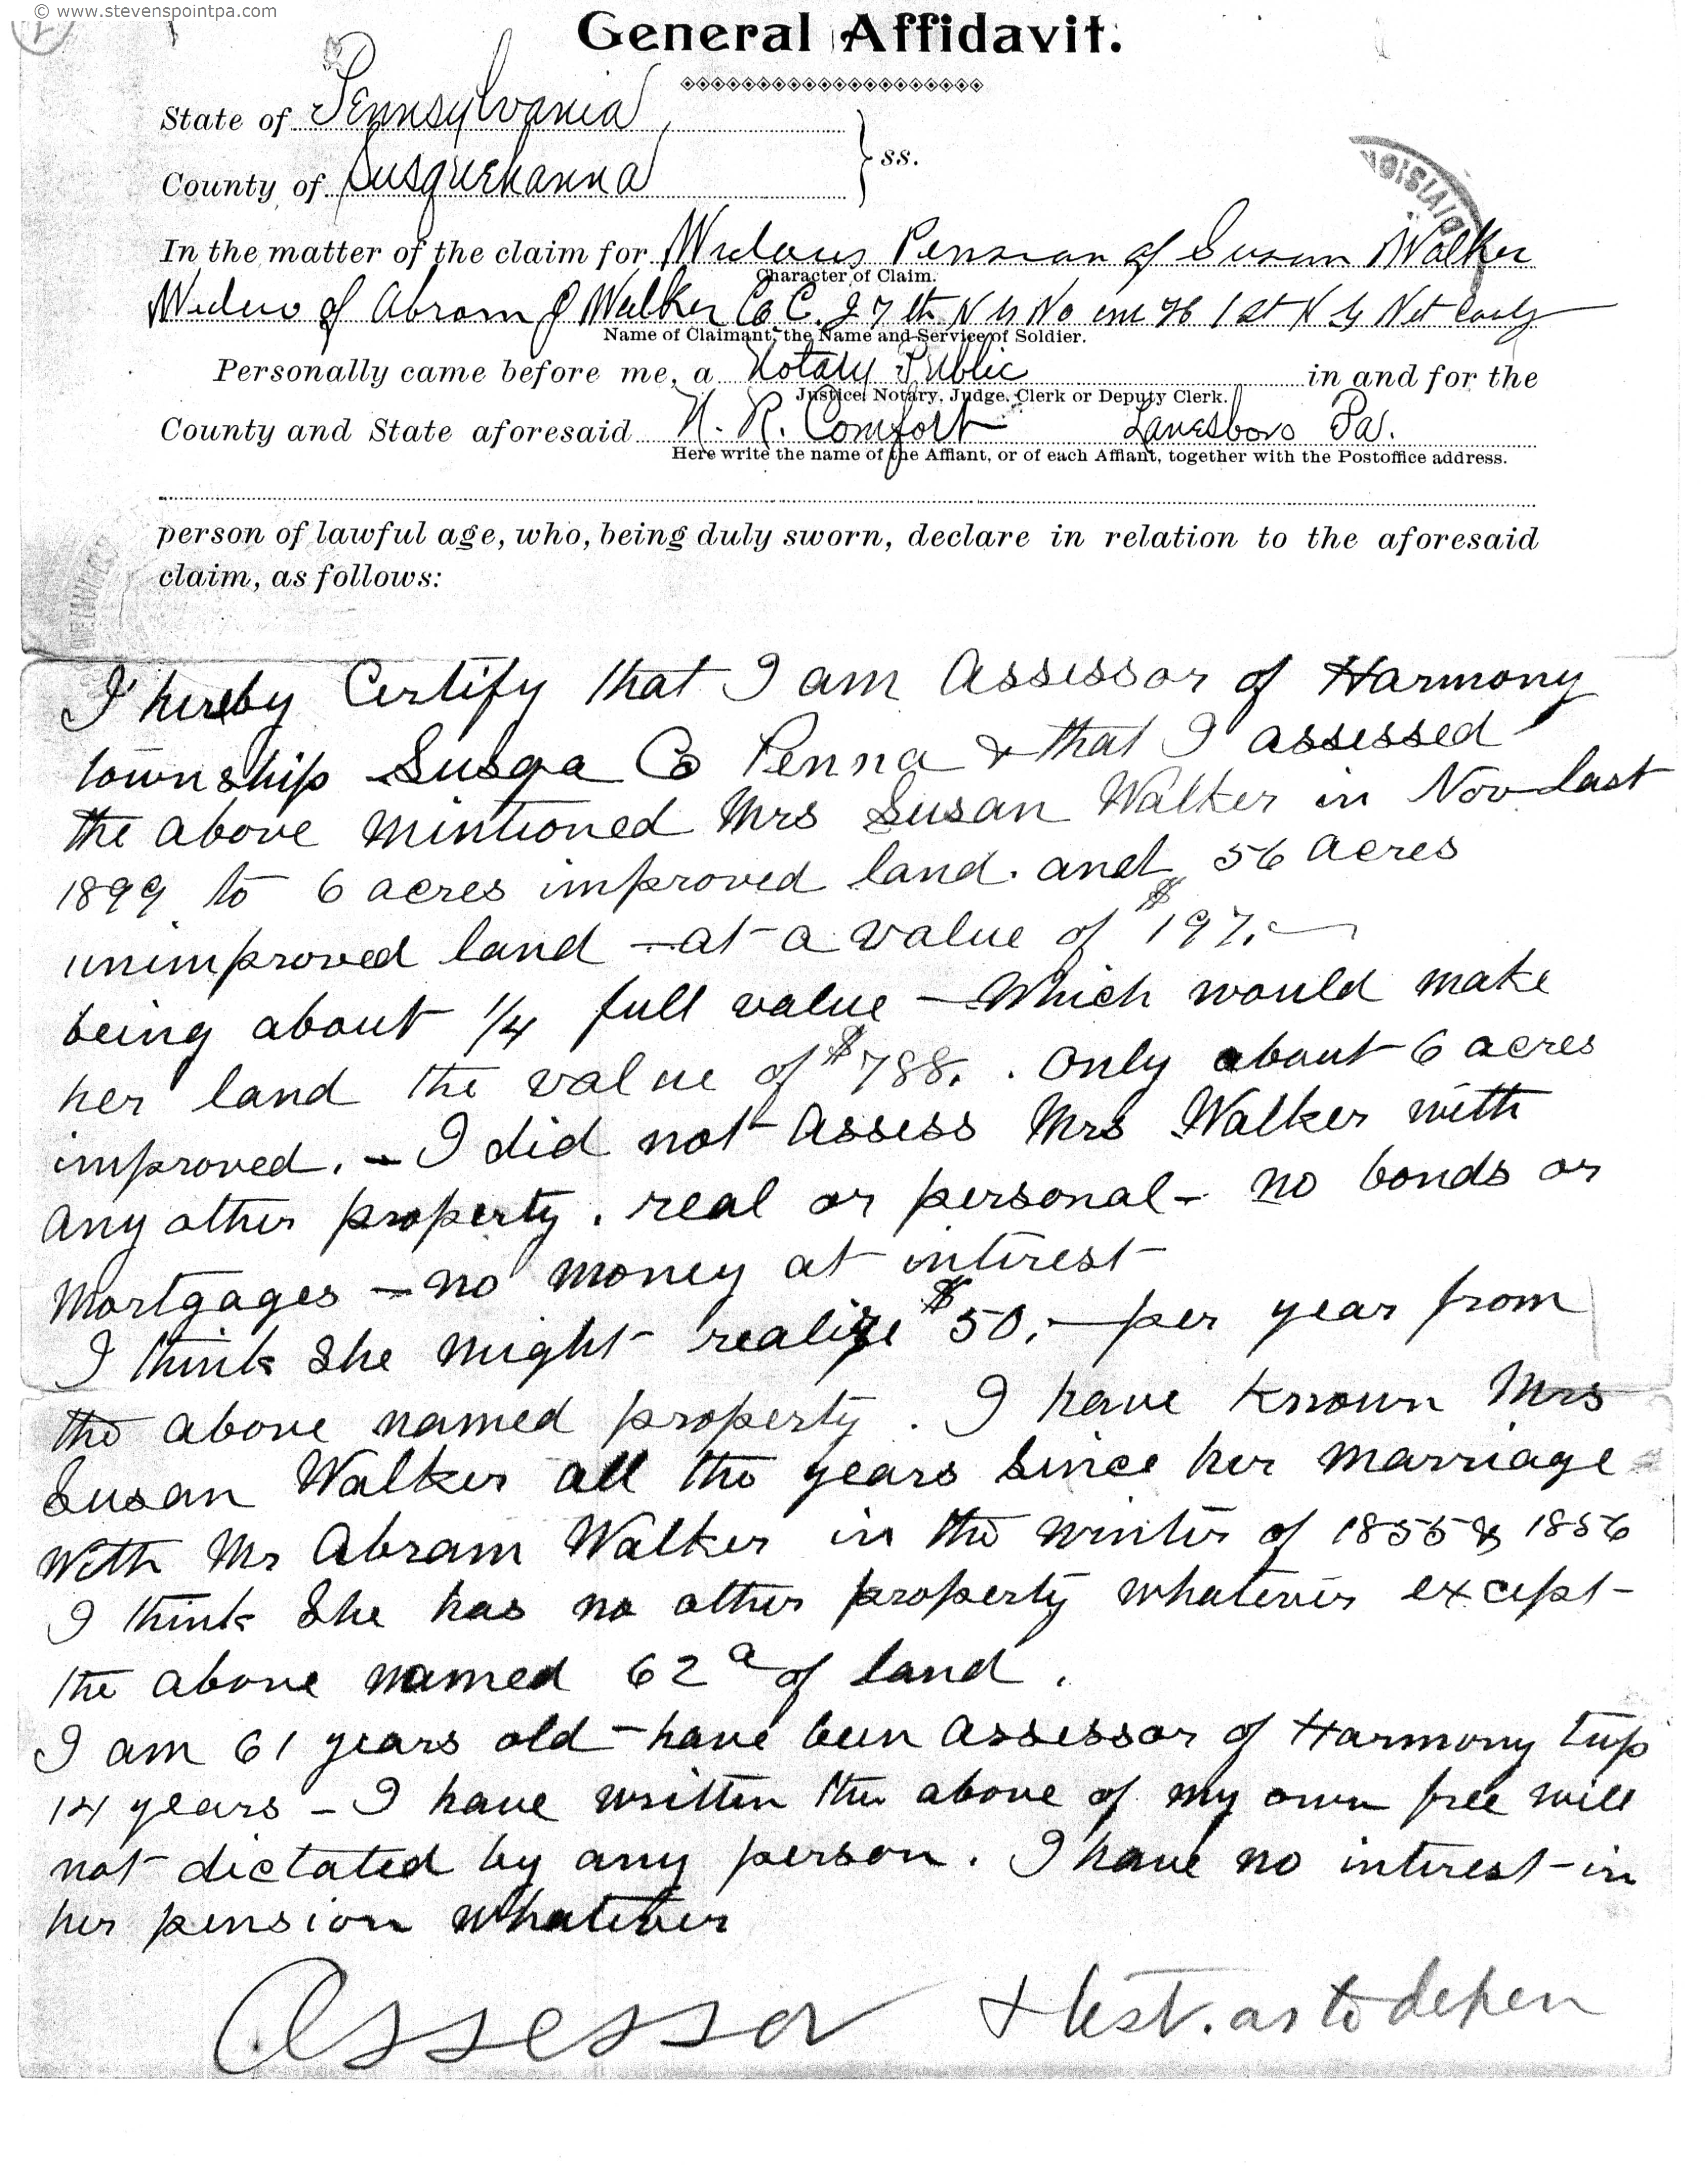 © www.stevenspointpa.com
General Affidavit.
State of Pennsylvania
County of Susquehanna } ss.
DIVISION
In the matter of the claim for Widows Pension of Susan Walker
Character of Claim.
Widow of Abram J Walker Co C. 27th N Y 1st N Y Vet Cavly
Name of Claimant, the Name and Service of Soldier.
Personally came before me, a Notary Public in and for the
Justice, Notary, Judge, Clerk or Deputy Clerk.
County and State aforesaid N. R. Comfort Lanesboro Pa.
Here write the name of the Affiant, or of each Affiant, together with the Postoffice address.
person of lawful age, who, being duly sworn, declare in relation to the aforesaid
claim, as follows:
I hereby Certify that I am Assessor of Harmony
township Susqa Co Penna & that I assessed
the above mintioned Mrs Susan Walker in Nov last
1899 to 6 acres improved land. and 56 acres
unimproved land - at a value of $197.-
being about 1/4 full value - Which would make
her land the value of $788. . Only about 6 acres
improved. - I did not assess Mrs Walker with
any other property. real or personal - no bonds or
Mortgages - no money at interest
I think she might realize $50.- per year from
the above named property. I have known Mrs
Susan Walker all the years since her marriage
with Mr Abram Walker in the winter of 1855 & 1856
I think she has no other property whatever except
the above named 62 a of land.
I am 61 years old - have been assessor of Harmony twp
14 years - I have written the above of my own free will
not dictated by any person. I have no interest in
her pension whatever
Assessor & test. as to depen